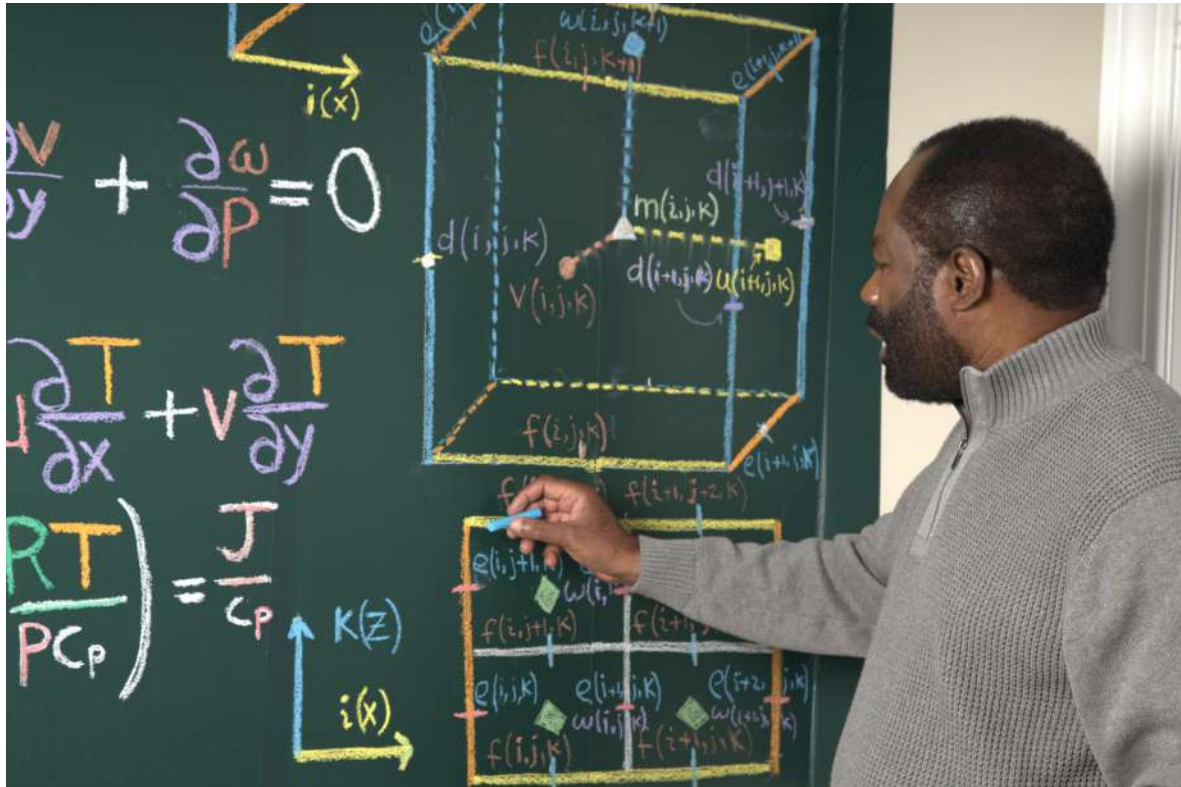 i(x)
∂v/∂y + ∂ω/∂P = 0
u ∂T/∂x + v ∂T/∂y
RT/PCp) = J/Cp
K(Z)
i(x)
ω(i,j,k+1)
f(i,j,k+1)
e(i+1,j,k+1)
d(i+1,j+1,k)
m(i,j,k)
d(i,j,k)
d(i+1,j,k)
u(i+1,j,k)
v(i,j,k)
f(i,j,k)
e(i+1,j,k)
f(i+1,j+2,k)
e(i,j+1,k)
f(i,j+1,k)
e(i,j,k)
e(i+1,j,k)
e(i+2,j,k)
ω(i,j,k)
f(i,j,k)
f(i+1,j,k)